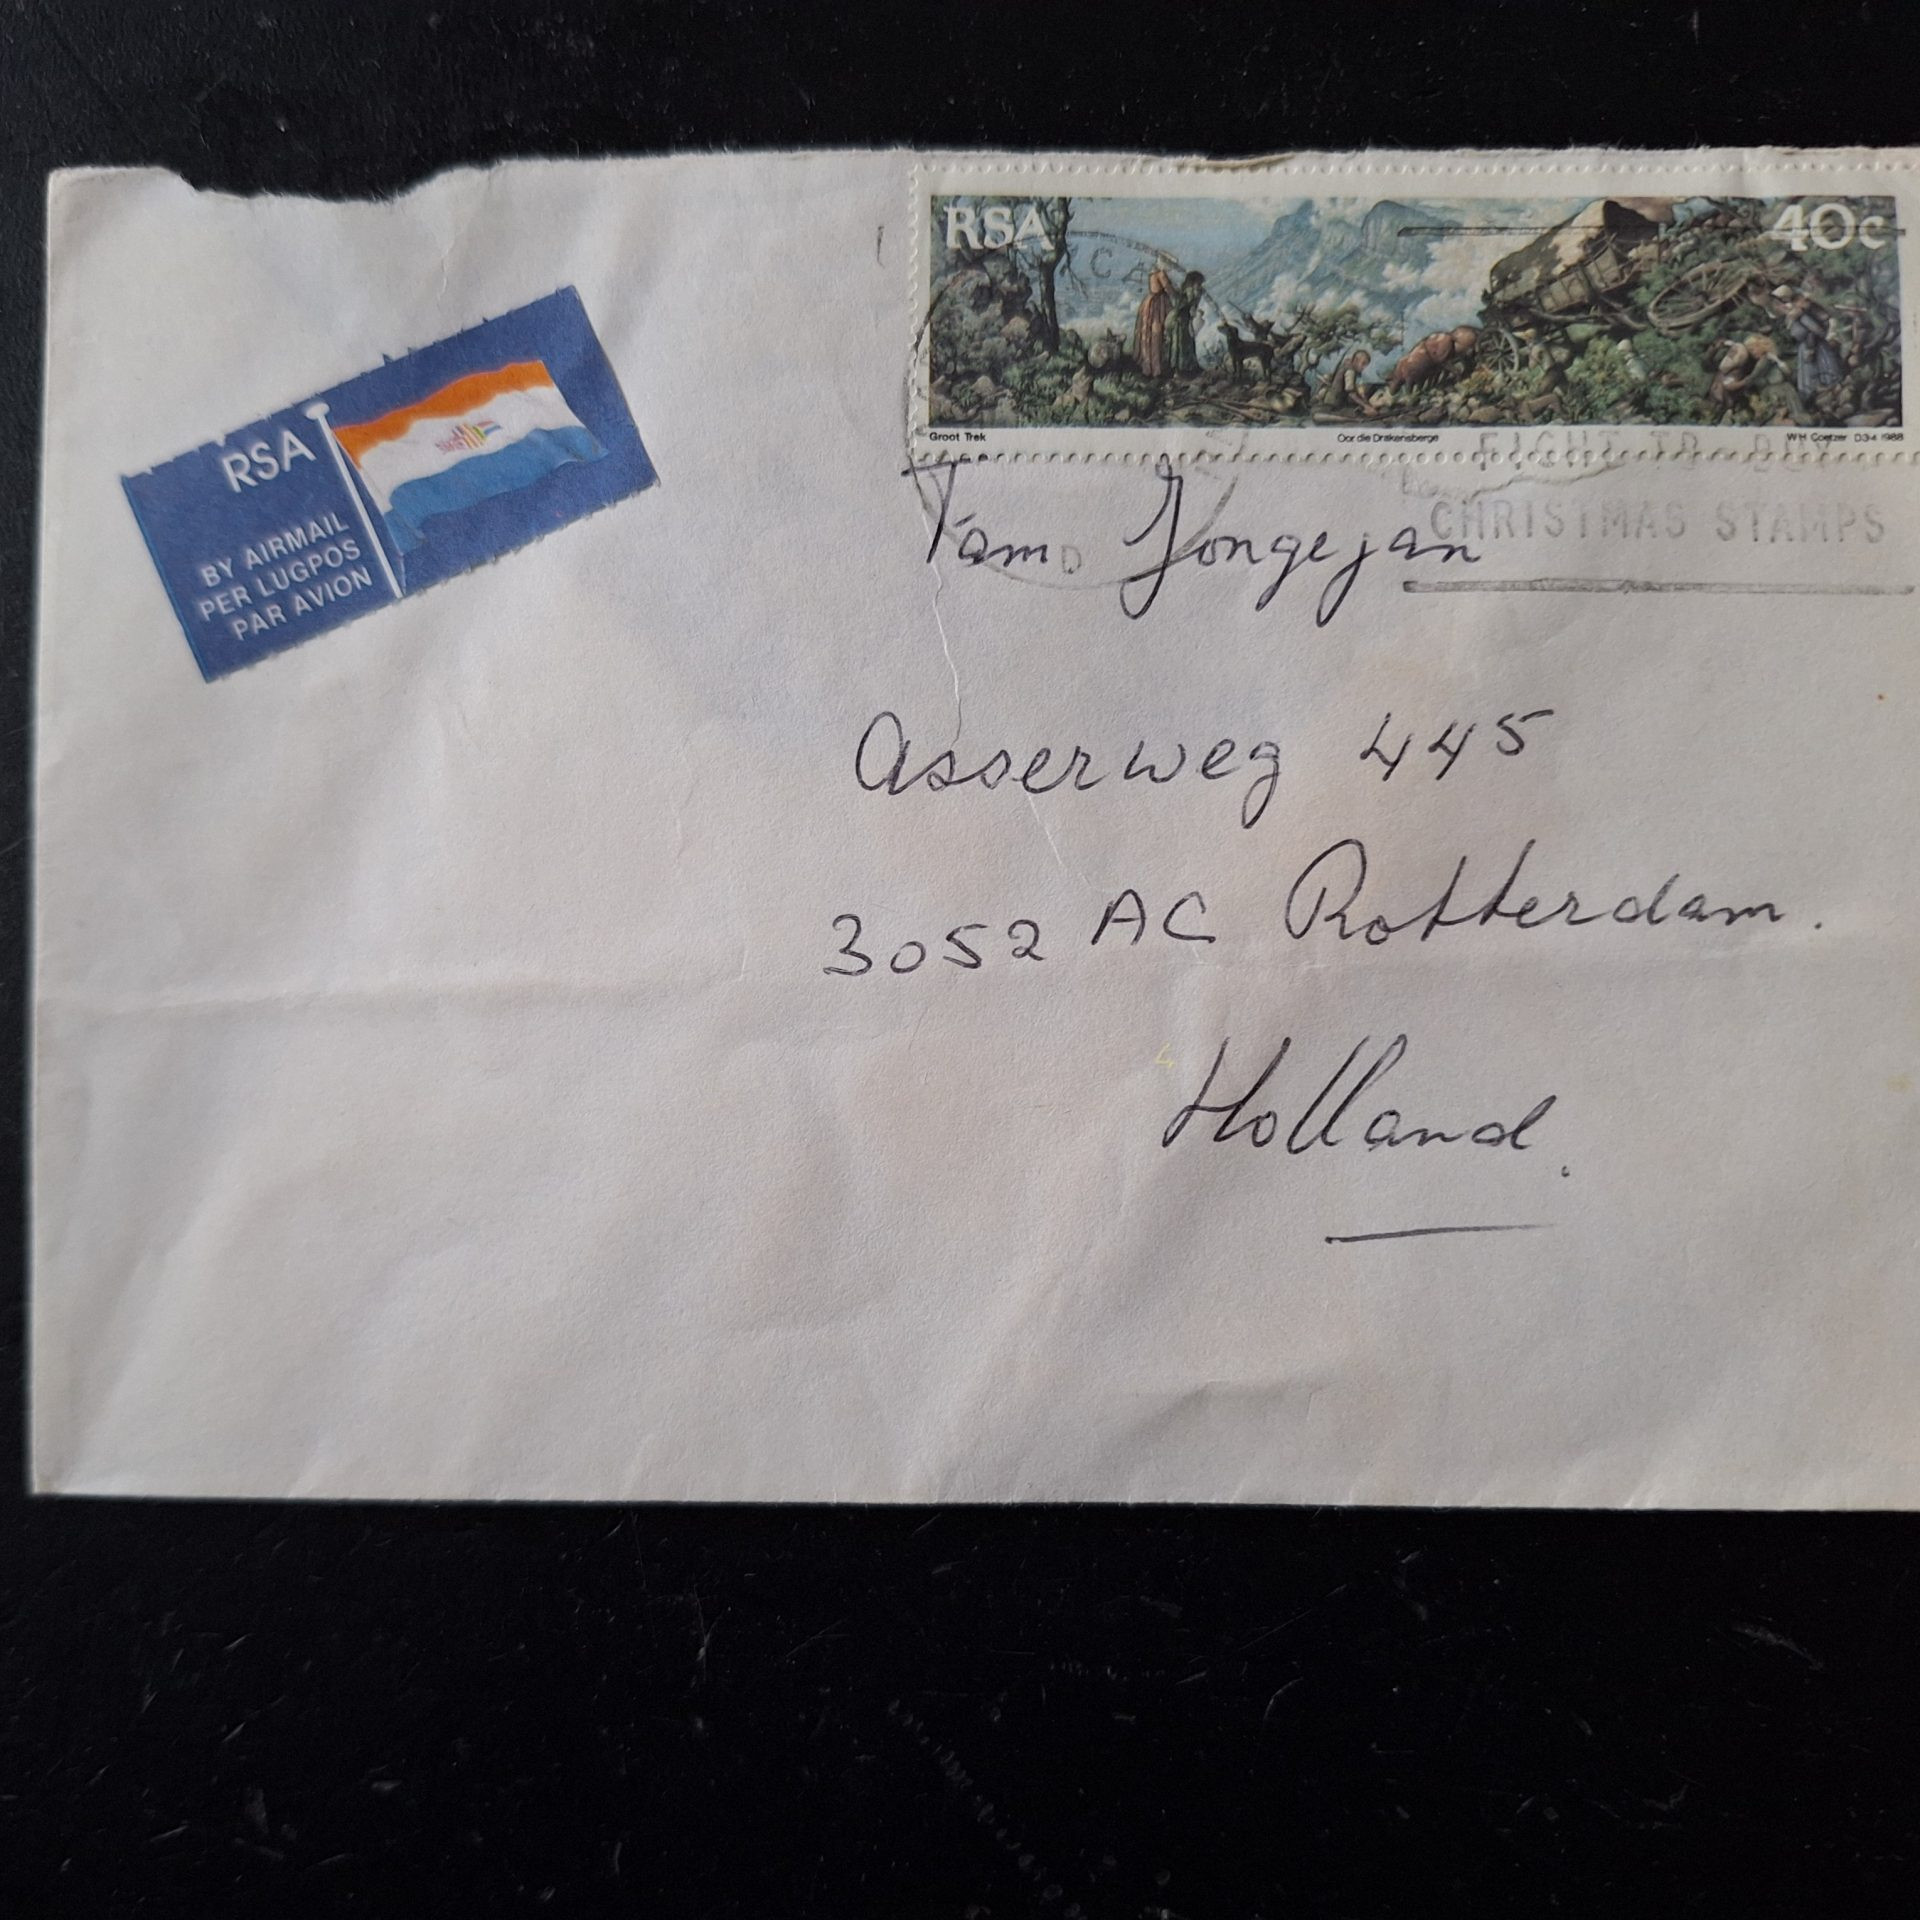 RSA
BY AIRMAIL
PER LUGPOS
PAR AVION
RSA 40c
Groot Trek Oor die Drakensberge W H Coetzer D3-4 1988
FIGHT TB BUY
CHRISTMAS STAMPS
Fam Jongejan
Asserweg 445
3052 AC Rotterdam.
Holland.